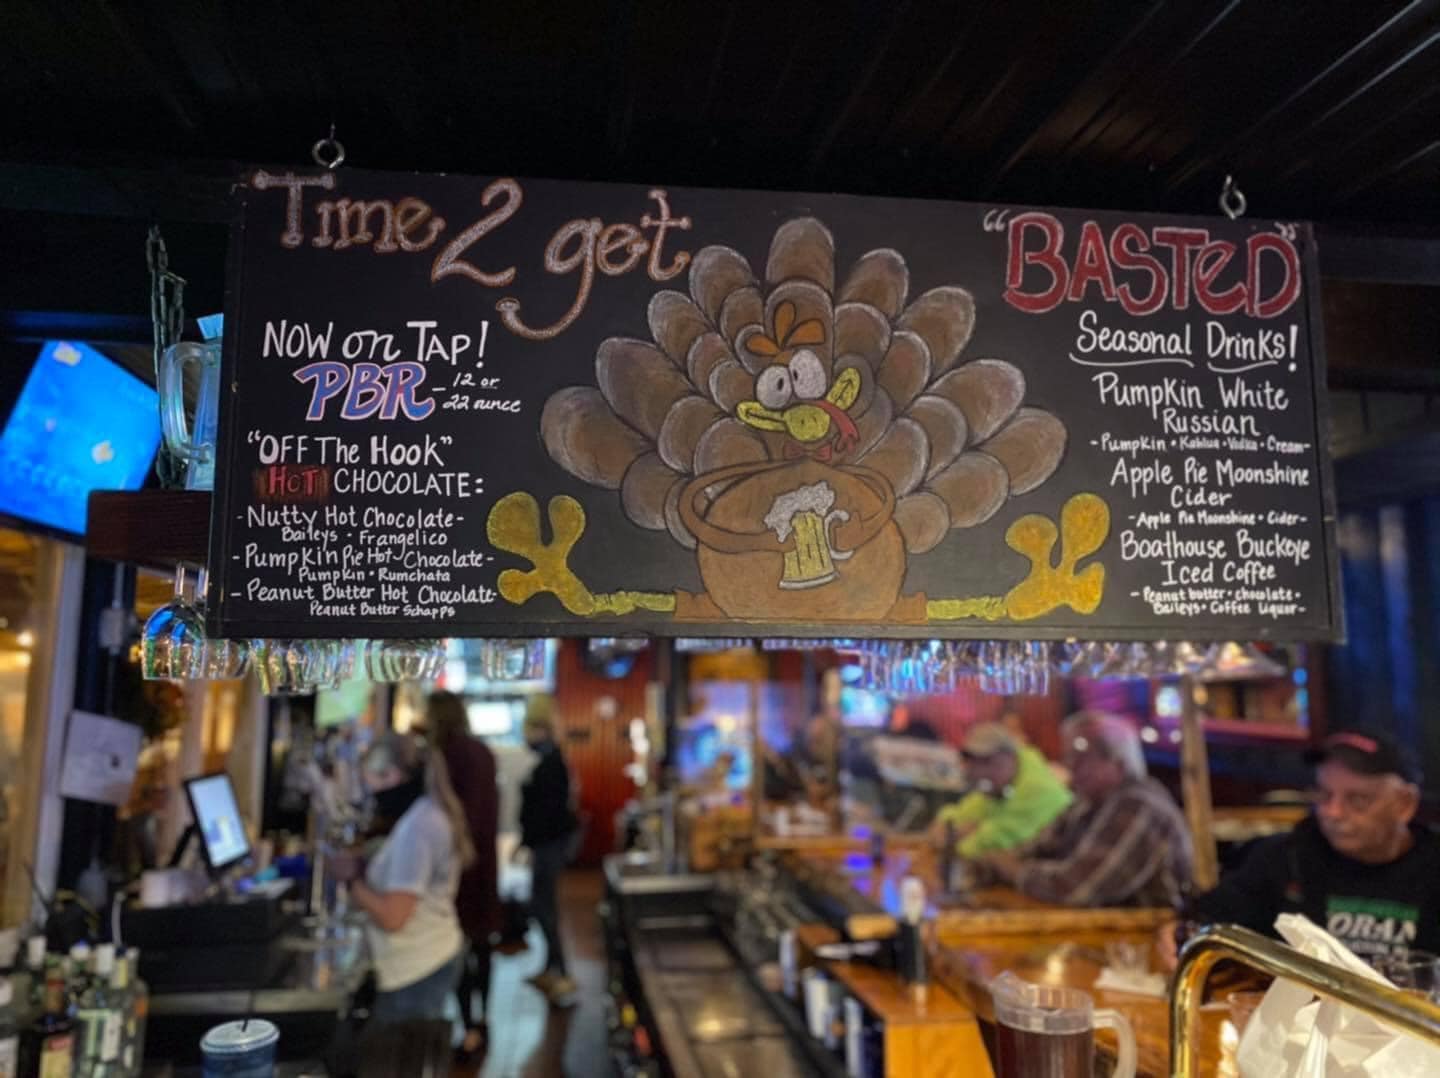 Time 2 get
"BASTeD"
NOW on TAP!
PBR - 12 or
22 ounce
"OFF The Hook"
HOT CHOCOLATE:
- Nutty Hot Chocolate -
Baileys • Frangelico
- Pumpkin Pie Hot Chocolate -
Pumpkin • Rumchata
- Peanut Butter Hot Chocolate -
Peanut Butter Schapps
Seasonal Drinks!
Pumpkin White
Russian
- Pumpkin • Kahlua • Vodka • Cream -
Apple Pie Moonshine
Cider
- Apple Pie Moonshine • Cider -
Boathouse Buckeye
Iced Coffee
- Peanut butter • chocolate •
Baileys • Coffee Liquor -